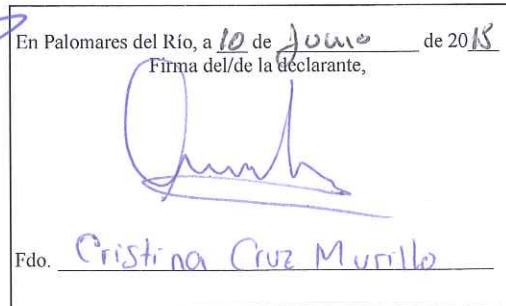 En Palomares del Río, a 10 de Junio de 2015
Firma del/de la declarante,
Fdo. Cristina Cruz Murillo